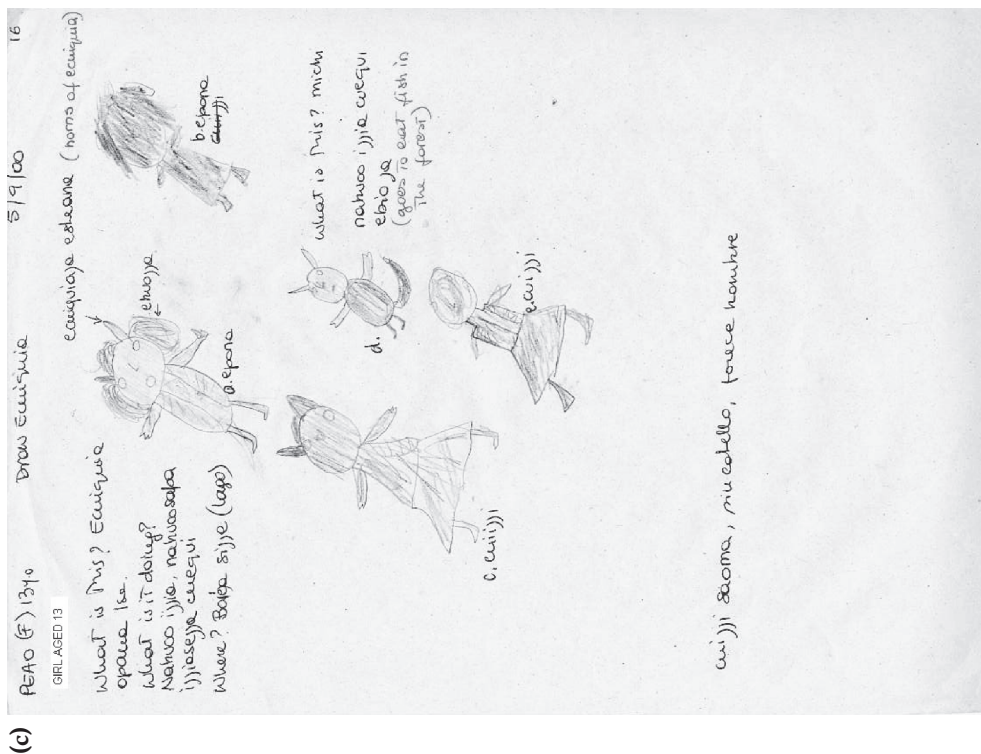 (c)
PEAO (F) 13y.o Draw Ecuiquia 5/9/00 16
GIRL AGED 13
What is this? Ecuiquia
What is it doing?
Nahuoo ijjia, nahuoosapa
ijjiasejja cuequi
Where? Bakja sijje (lago)
ecuiquiaja esheana (horns of ecuiquia)
ehuojja
a. epona
b. epona
c. cuiijji
d.
What is this? michi
nahuoo ijjia cuequi
ebio ja
(goes to eat fish in
the forest)
e. cuijji
cuijji saoma, sin cabello, parece hombre